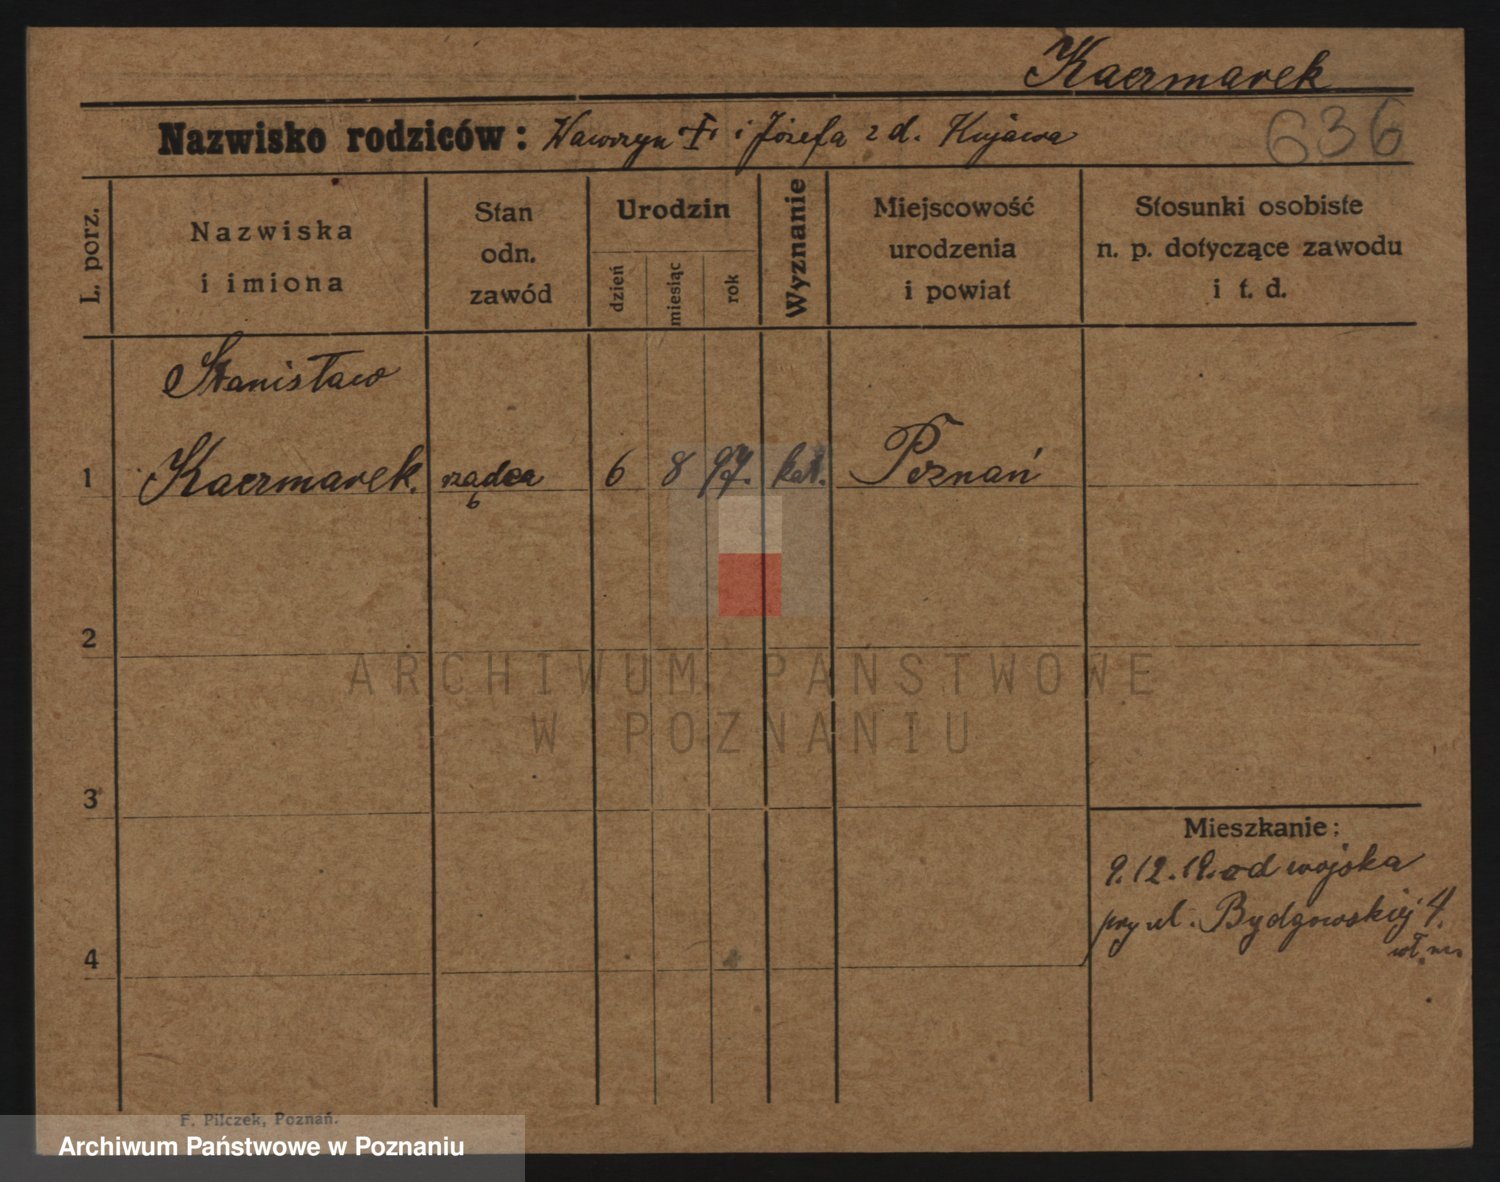 Kaczmarek
Nazwisko rodziców: Wawrzyn † i Józefa z d. Kujawa
636
L. porz.
Nazwiska
i imiona
Stan
odn.
zawód
Urodzin
dzień
miesiąc
rok
Wyznanie
Miejscowość
urodzenia
i powiat
Stosunki osobiste
n. p. dotyczące zawodu
i t. d.
Stanisław
1 Kaczmarek. rządca 6 8 97. kat. Poznań
6
2
ARCHIWUM PAŃSTWOWE
W POZNANIU
3
Mieszkanie:
9.12.19. od wojska
przy ul. Bydgowskiej 4.
4
F. Pilczek, Poznań.
Archiwum Państwowe w Poznaniu